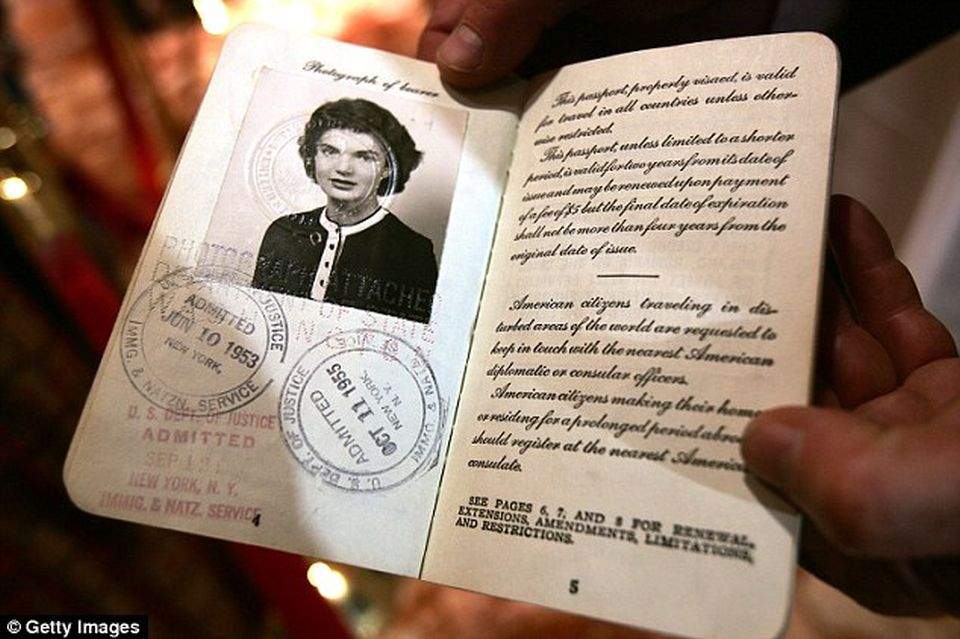 Photograph of bearer
PHOTOGRAPH ATTACHED
OF STATE
ADMITTED
JUN 10 1953
NEW YORK,
IMMG. & NATZN. SERVICE
JUSTICE
U. S. DEPT. OF JUSTICE
ADMITTED
OCT 11 1955
NEW YORK,
N. Y.
U. S. DEPT. OF JUSTICE
ADMITTED
SEP
NEW YORK, N. Y.
IMMIG. & NATZ. SERVICE
4
This passport, properly visaed, is valid
for travel in all countries unless other-
wise restricted.
This passport, unless limited to a shorter
period, is valid for two years from its date of
issue and may be renewed upon payment
of a fee of $5 but the final date of expiration
shall not be more than four years from the
original date of issue.
American citizens traveling in dis-
turbed areas of the world are requested to
keep in touch with the nearest American
diplomatic or consular officers.
American citizens making their home
or residing for a prolonged period abroad
should register at the nearest American
consulate.
SEE PAGES 6, 7, AND 8 FOR RENEWAL,
EXTENSIONS, AMENDMENTS, LIMITATIONS,
AND RESTRICTIONS.
5
© Getty Images